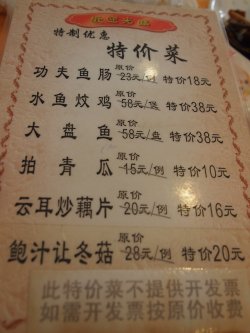 特制优惠
特价菜
原价
功夫鱼肠 23元/例 特价18元
原价
水鱼炆鸡 58元/煲 特价38元
原价
大盘鱼 58元/盘 特价38元
原价
拍青瓜 15元/例 特价10元
原价
云耳炒藕片 20元/例 特价16元
原价
鲍汁让冬菇 28元/例 特价20元
此特价菜不提供开发票
如需开发票按原价收费